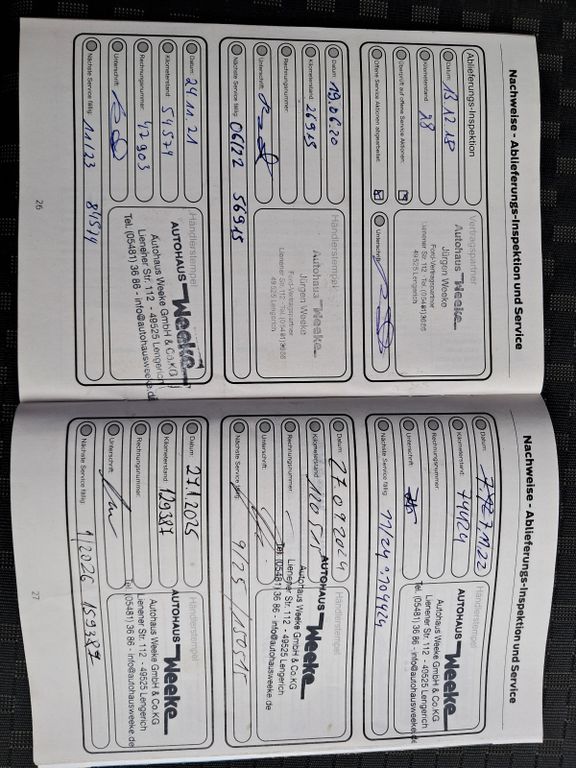 Nachweise - Ablieferungs-Inspektion und Service
Ablieferungs-Inspektion
Datum: 13.12.18
Kilometerstand: 28
Überprüft auf offene Service Aktionen:
Offene Service Aktionen abgearbeitet:
Vertragspartner
Autohaus Weeke
Jürgen Weeke
Ford-Vertragspartner
Lienener Str. 112 - Tel. (05481) 3686
49525 Lengerich
Unterschrift:
Datum: 19.06.20
Kilometerstand: 26915
Rechnungsnummer:
Unterschrift:
Nächste Service fällig: 06/22 56915
Händlerstempel
Autohaus Weeke
Jürgen Weeke
Ford-Vertragspartner
Lienener Str. 112 - Tel. (05481) 3686
49525 Lengerich
Datum: 24.11.21
Kilometerstand: 54574
Rechnungsnummer: 47903
Unterschrift:
Nächste Service fällig: 11/23 84574
Händlerstempel
AUTOHAUS Weeke
Autohaus Weeke GmbH & Co.KG
Lienener Str. 112 - 49525 Lengerich
Tel. (05481) 36 86 - info@autohausweeke.de
26
Nachweise - Ablieferungs-Inspektion und Service
Datum: 11.22
Kilometerstand: 74424
Rechnungsnummer:
Unterschrift:
Nächste Service fällig: 11/24 104424
Händlerstempel
AUTOHAUS Weeke
Autohaus Weeke GmbH & Co.KG
Lienener Str. 112 - 49525 Lengerich
Tel. (05481) 36 86 - info@autohausweeke.de
Datum: 27.09.2024
Kilometerstand: 120515
Rechnungsnummer:
Unterschrift:
Nächste Service fällig: 9/25 / 150515
Händlerstempel
AUTOHAUS Weeke
Autohaus Weeke GmbH & Co.KG
Lienener Str. 112 - 49525 Lengerich
Tel. (05481) 36 86 - info@autohausweeke.de
Datum: 27.1.2025
Kilometerstand: 129387
Rechnungsnummer:
Unterschrift:
Nächste Service fällig: 1/2026 159387
Händlerstempel
AUTOHAUS Weeke
Autohaus Weeke GmbH & Co.KG
Lienener Str. 112 - 49525 Lengerich
Tel. (05481) 36 86 - info@autohausweeke.de
27